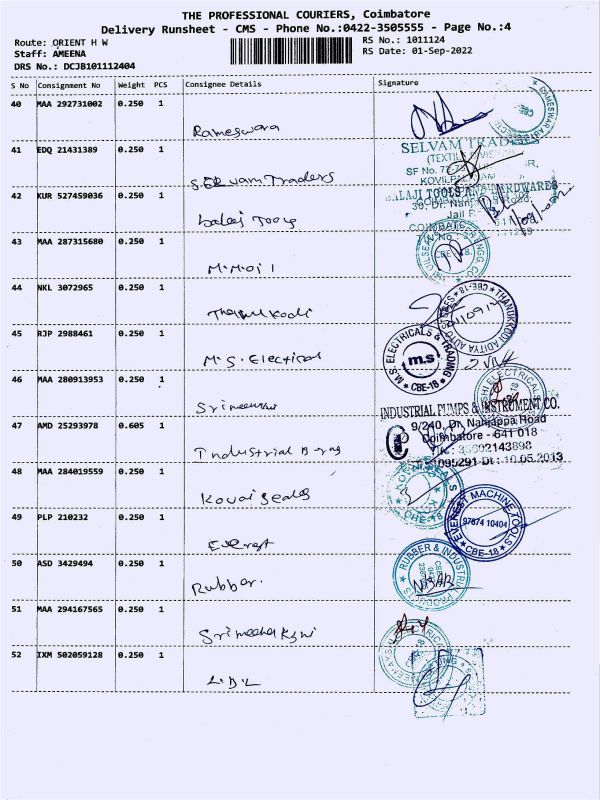 THE PROFESSIONAL COURIERS, Coimbatore
Delivery Runsheet - CMS - Phone No.:0422-3505555 - Page No.:4
Route: ORIENT H W
RS No.: 1011124
Staff: AMEENA
RS Date: 01-Sep-2022
DRS No.: DCJB101112404
S No Consignment No Weight PCS Consignee Details Signature
40 MAA 292731002 0.250 1
Rameswara
41 EDQ 21431389 0.250 1
SELVAM TRADERS
SELvam Traders
42 KUR 527459036 0.250 1
BALAJI TOOLS AND HARDWARES
balaji Tools
43 MAA 287315680 0.250 1
M.M.oil
44 NKL 3072965 0.250 1
Thanukodi
45 RJP 2988461 0.250 1
M.S. ELECTRICALS & TRADING
m.s
CBE-18
M.S. Electrical
46 MAA 280913953 0.250 1
INDUSTRIAL PUMPS & INSTRUMENT CO.
47 AMD 25293978 0.605 1
9/240, Dr. Nanjappa Road
Coimbatore - 641 018
Industrial
48 MAA 284019559 0.250 1
Kovai Seales
49 PLP 210232 0.250 1
EVEREST MACHINE TOOLS
97874 10404
CBE-18
Everest
50 ASD 3429494 0.250 1
RUBBER & INDUSTRIAL PRODUCTS
Rubber.
51 MAA 294167565 0.250 1
Srimeenakshi
52 IXM 502059128 0.250 1
L.D.L